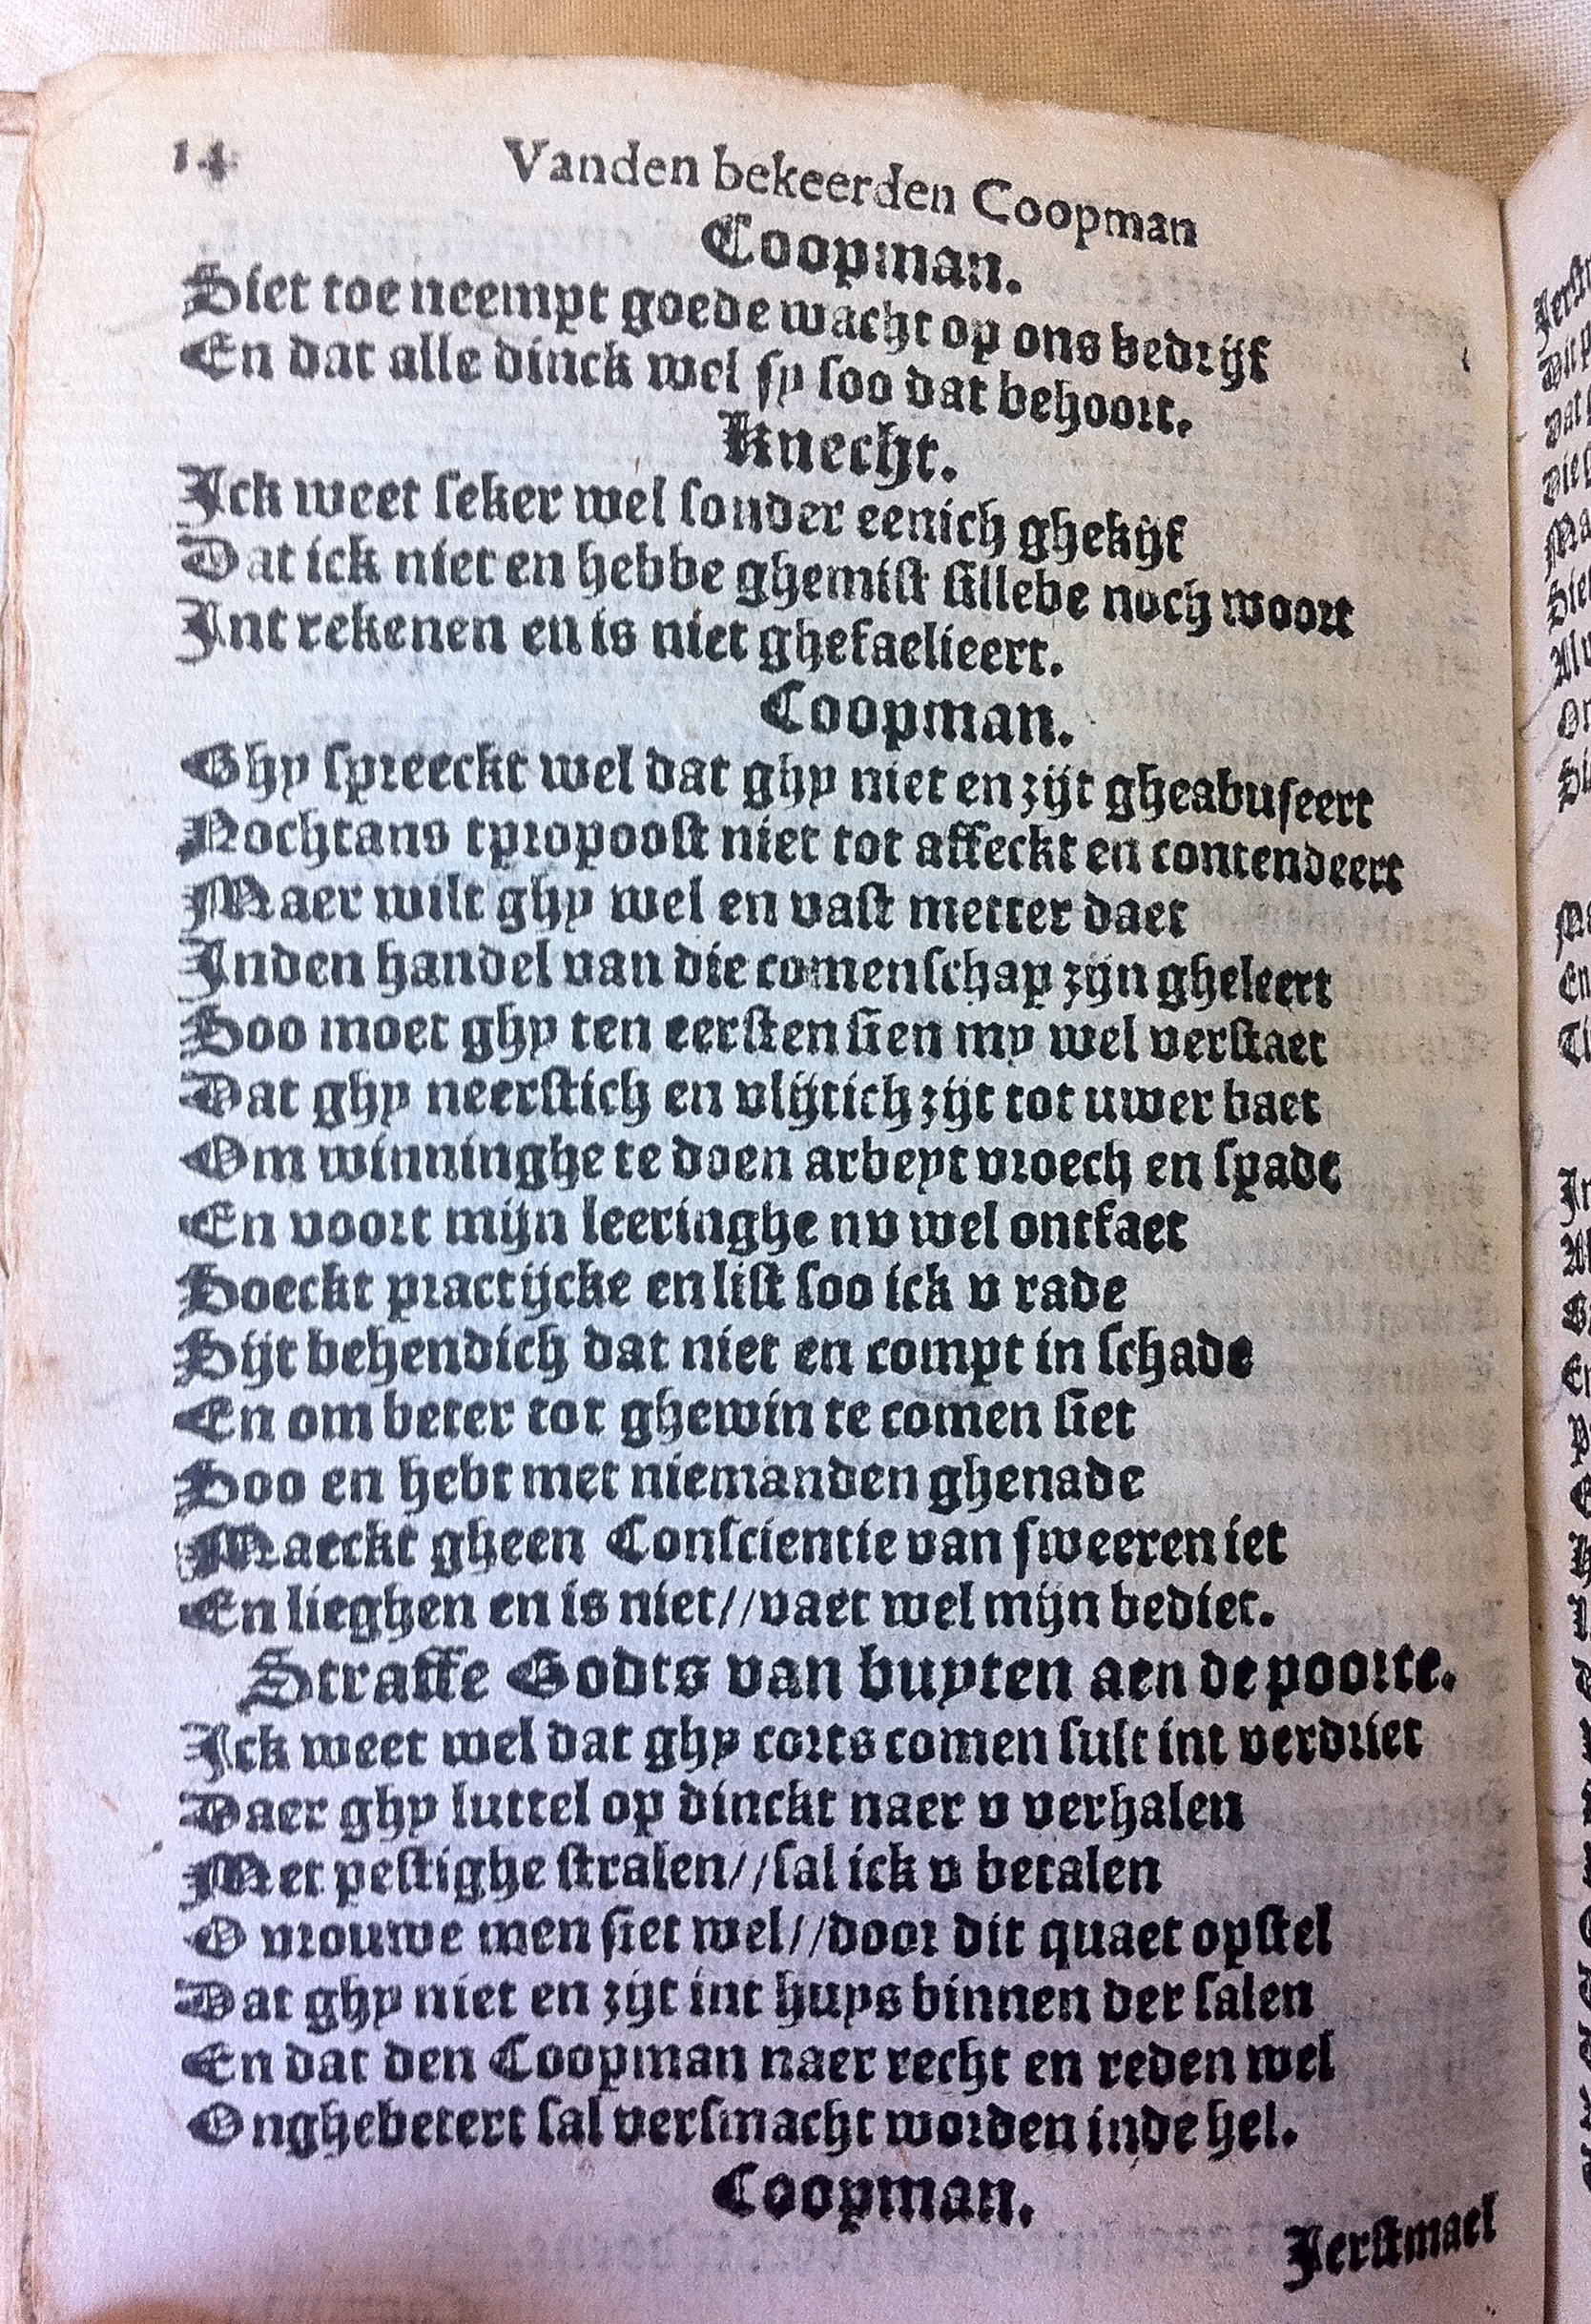 14 Vanden bekeerden Coopman
Coopman.
Siet toe neempt goede wacht op ons bedrijf
En dat alle dinck wel sy soo dat behoort.
Knecht.
Ick weet seker wel sonder eenich ghekijf
Dat ick niet en hebbe ghemist sillebe noch woort
Int rekenen en is niet ghefaelieert.
Coopman.
Ghy spreeckt wel dat ghy niet en zijt gheabuseert
Nochtans tpropoost niet tot affeckt en contendeert
Maer wilt ghy wel en vast metter daet
Inden handel van die comenschap zijn gheleert
Soo moet ghy ten eersten sien my wel verstaet
Dat ghy neerstich en vlijtich zijt tot uwer baet
Om winninghe te doen arbeyt vroech en spade
En voort mijn leeringhe nv wel ontfaet
Soeckt practijcke en list soo ick v rade
Sijt behendich dat niet en compt in schade
En om beter tot ghewin te comen siet
Soo en hebt met niemanden ghenade
Maeckt gheen Conscientie van sweeren iet
En lieghen en is niet//vaet wel mijn bediet.
Straffe Godts van buyten aen de poorte.
Ick weet wel dat ghy corts comen sult int verdriet
Daer ghy luttel op dinckt naer v verhalen
Met pestighe stralen//sal ick v betalen
O vrouwe men siet wel//door dit quaet opstel
Dat ghy niet en zijt int huys binnen der salen
En dat den Coopman naer recht en reden wel
Onghebetert sal versmacht worden inde hel.
Coopman.
Ierstmael